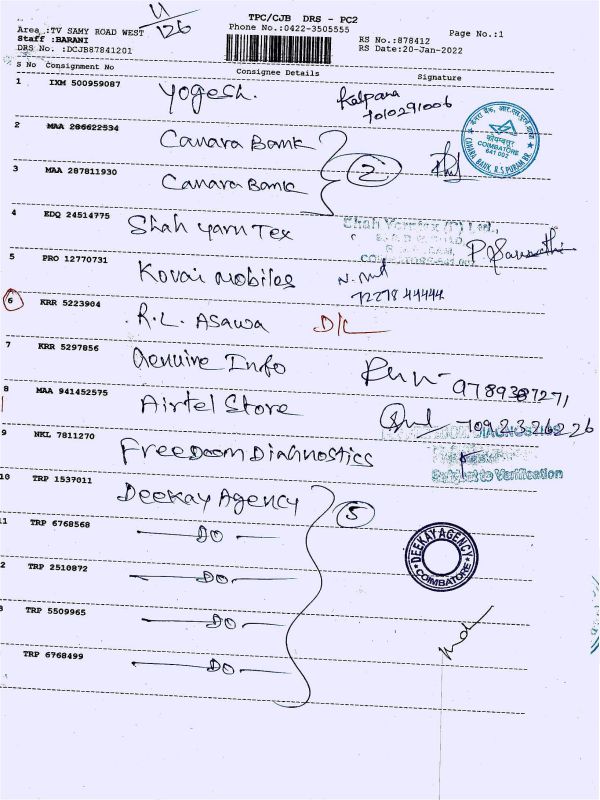 11/126
TPC/CJB DRS - PC2
Area :TV SAMY ROAD WEST Phone No.:0422-3505555 Page No.:1
Staff :BARANI RS No.:878412
DRS No. :DCJB87841201 RS Date:20-Jan-2022
S No Consignment No Consignee Details Signature
1 IXM 500959087 Yogesh. Kalpana
7010291006
2 MAA 286622534 Canara Bank
CANARA BANK, R.S PURAM BR.
COIMBATORE
641 002
3 MAA 287811930 Canara Bank 2
4 EDQ 24514775 Shah Yarn Tex
Shah Yarntex (P) Ltd.,
5 PRO 12770731 Kovai Mobiles
72278 44444
6 KRR 5223904 R.L. Asawa D/L
7 KRR 5297856 Genuine Info 9789387271
8 MAA 941452575 Airtel Store 7092326226
9 NKL 7811270 FreeDom Diahnostics
DIAGNOSTICS
Subject to Verification
10 TRP 1537011 Deekay Agency 5
1 TRP 6768568 DO
DEEKAY AGENCY
COIMBATORE
2 TRP 2510872 DO
3 TRP 5509965 DO
TRP 6768499 DO